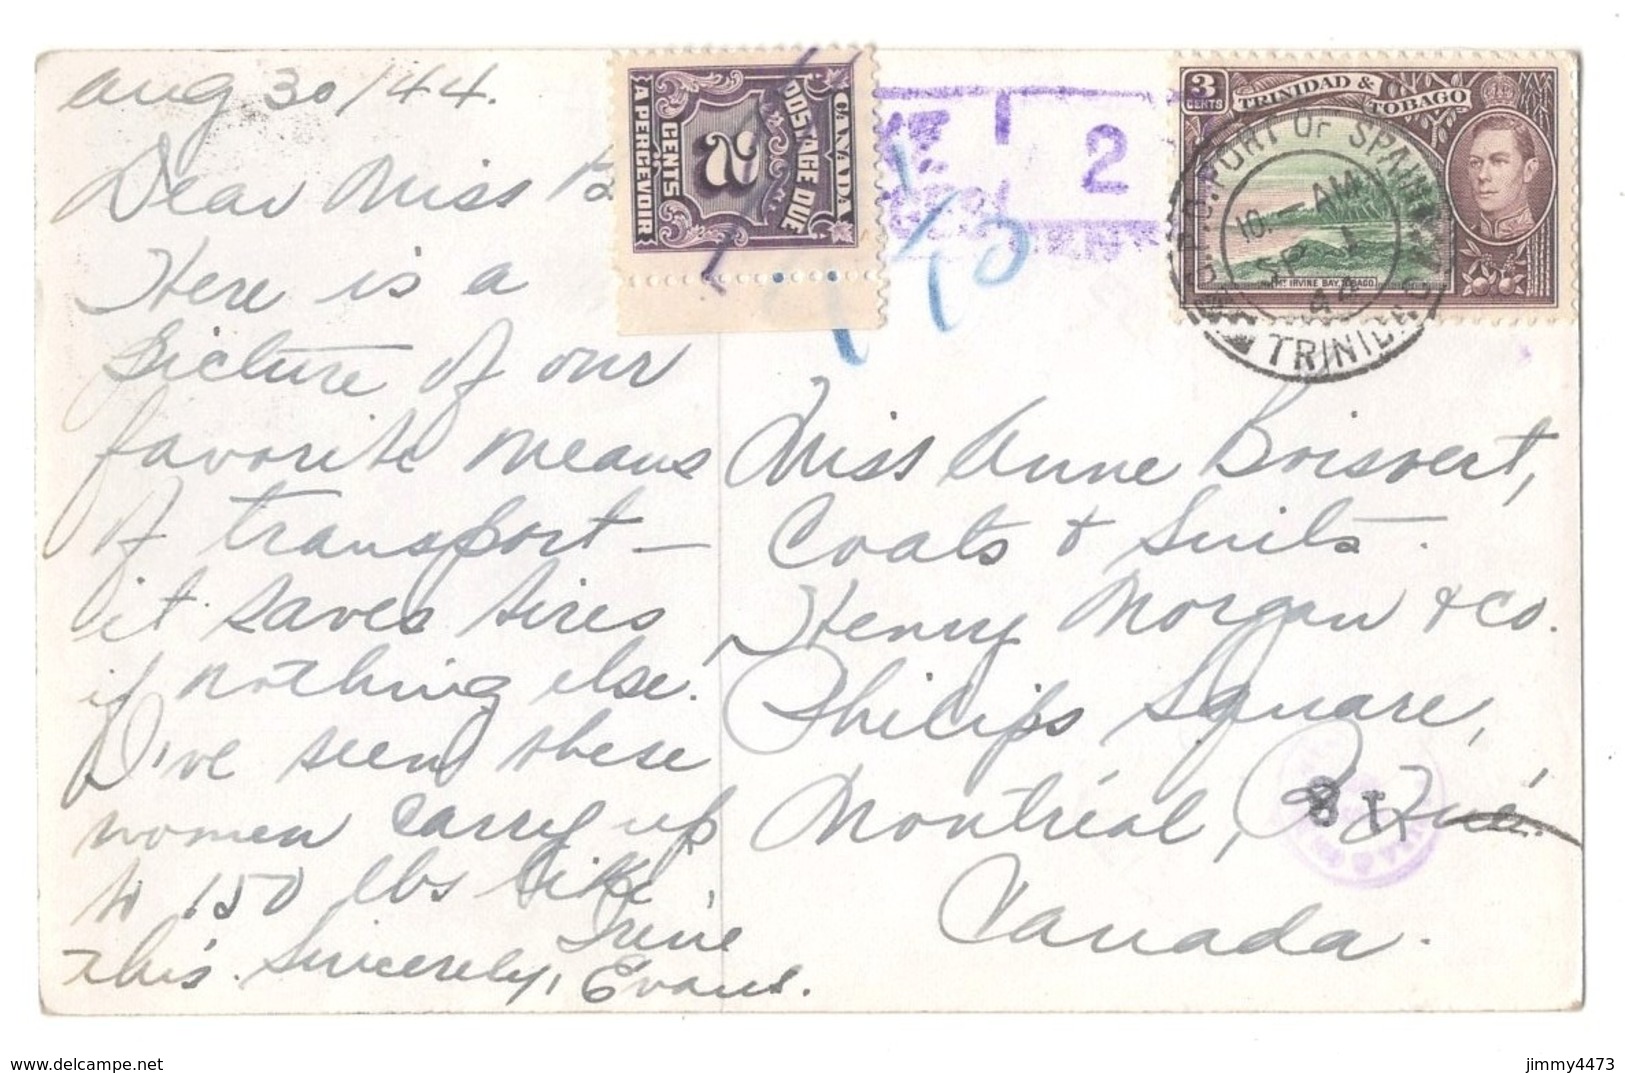 Aug 30/44.
Dear Miss B
Here is a
picture of our
favorite means
of transport —
it saves tires
if nothing else.
I've seen these
women carry up
to 150 lbs like
this. Sincerely,
Irene
Evans.
CANADA
POSTAGE DUE
2
CENTS
A PERCEVOIR
2
3
CENTS
TRINIDAD &
TOBAGO
MT IRVINE BAY, TOBAGO
G.P.O. PORT OF SPAIN
10 - AM
SP 1
44
TRINIDAD
Miss Anne Boisvert,
Coats & Suits.
Henry Morgan & Co.
Philips Square,
Montréal, P. Qué.
Canada.
81
www.delcampe.net
jimmy4473